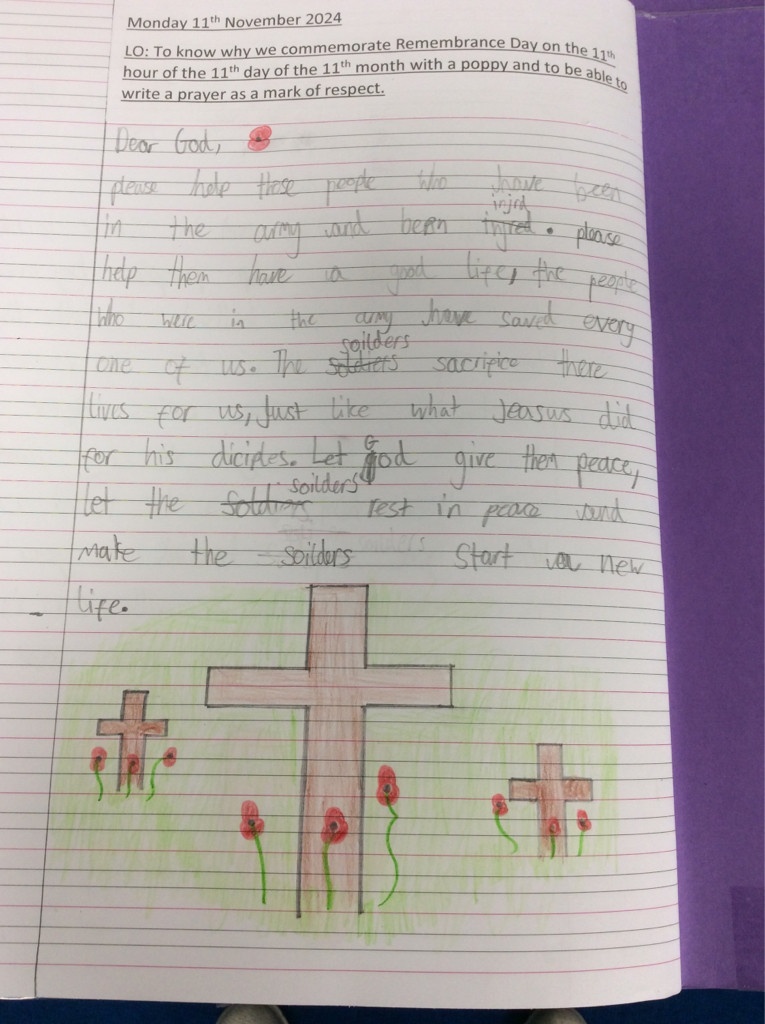 Monday 11th November 2024
LO: To know why we commemorate Remembrance Day on the 11th
hour of the 11th day of the 11th month with a poppy and to be able to
write a prayer as a mark of respect.
Dear God,
please help these people who have been
injrd
in the army and been injred. please
help them have a good life, the people
who were in the army have saved every
soilders
one of us. The soldiers sacrifice there
lives for us, Just like what Jeasus did
for his diciples. Let God give them peace,
soilders
let the soldiers rest in peace and
make the soilders Start a new
life.